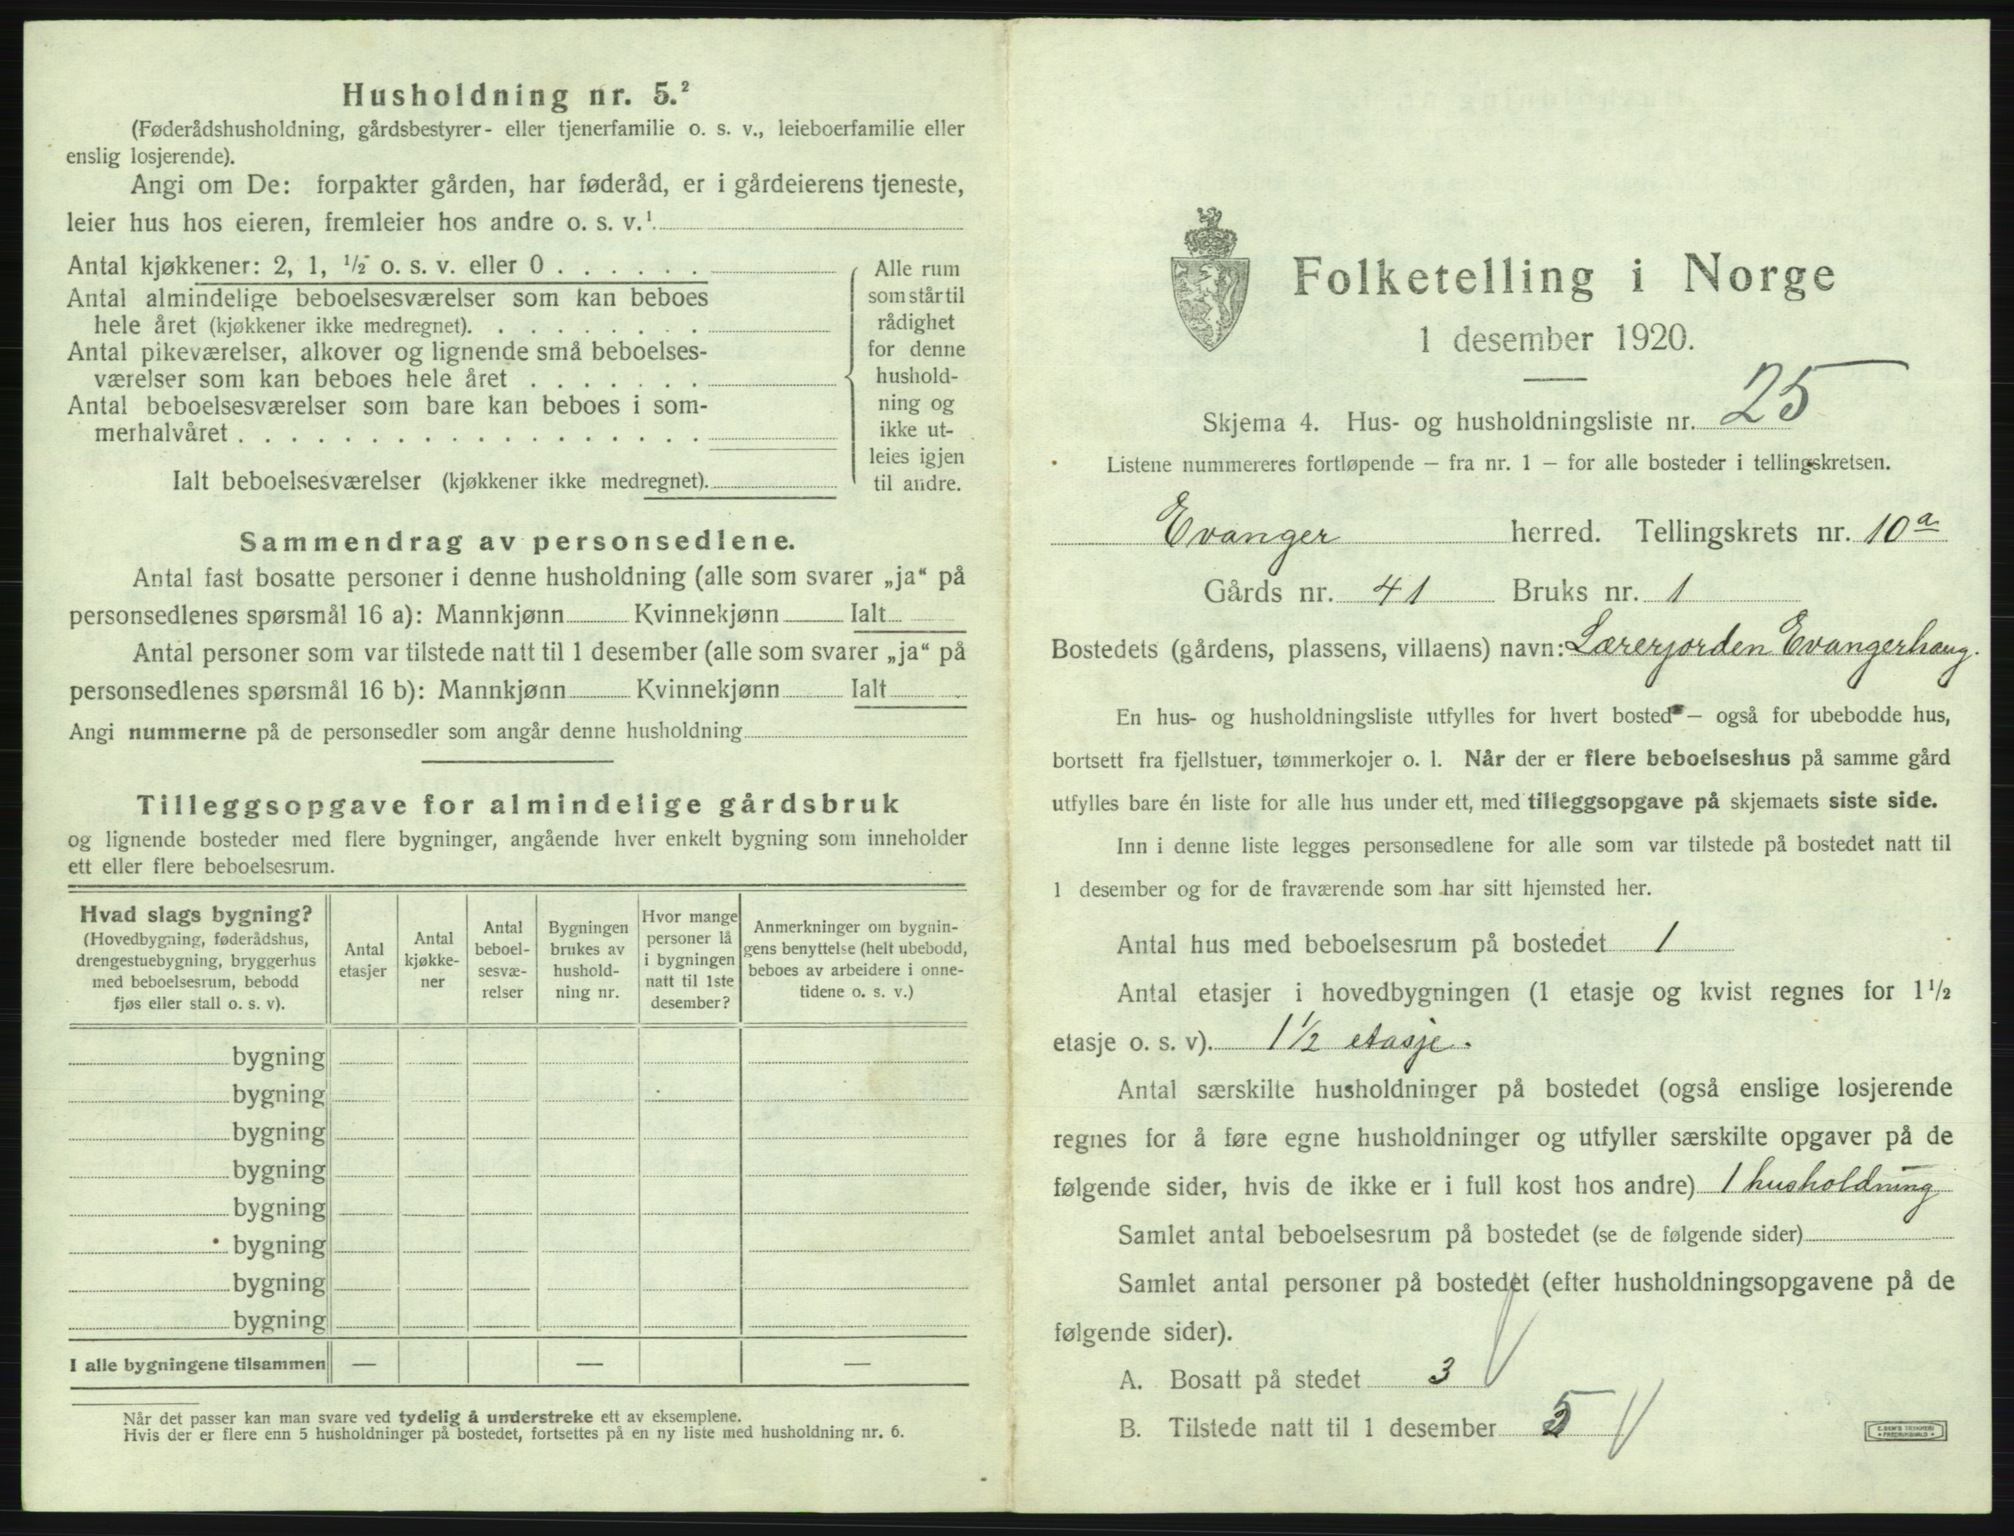 Husholdning nr. 5.²
(Føderådshusholdning, gårdsbestyrer- eller tjenerfamilie o. s. v., leieboerfamilie eller
enslig losjerende).
Angi om De: forpakter gården, har føderåd, er i gårdeierens tjeneste,
leier hus hos eieren, fremleier hos andre o. s. v.¹
Antal kjøkkener: 2, 1, ½ o. s. v. eller 0 . . . . . .
Antal almindelige beboelsesværelser som kan beboes
hele året (kjøkkener ikke medregnet). . . . . . . . .
Antal pikeværelser, alkover og lignende små beboelses-
værelser som kan beboes hele året . . . . . . .
Antal beboelsesværelser som bare kan beboes i som-
merhalvåret . . . . . . . . . . . . . . . . . .
Ialt beboelsesværelser (kjøkkener ikke medregnet).
Alle rum
som står til
rådighet
for denne
hushold-
ning og
ikke ut-
leies igjen
til andre.
Sammendrag av personsedlene.
Antal fast bosatte personer i denne husholdning (alle som svarer „ja“ på
personsedlenes spørsmål 16 a): Mannkjønn Kvinnekjønn Ialt
Antal personer som var tilstede natt til 1 desember (alle som svarer „ja“ på
personsedlenes spørsmål 16 b): Mannkjønn Kvinnekjønn Ialt
Angi nummerne på de personsedler som angår denne husholdning
Tilleggsopgave for almindelige gårdsbruk
og lignende bosteder med flere bygninger, angående hver enkelt bygning som inneholder
ett eller flere beboelsesrum.
Hvad slags bygning?
(Hovedbygning, føderådshus,
drengestuebygning, bryggerhus
med beboelsesrum, bebodd
fjøs eller stall o. s. v).
Antal
etasjer
Antal
kjøkke-
ner
Antal
beboel-
sesvæ-
relser
Bygningen
brukes av
hushold-
ning nr.
Hvor mange
personer lå
i bygningen
natt til 1ste
desember?
Anmerkninger om bygnin-
gens benyttelse (helt ubebodd,
beboes av arbeidere i onne-
tidene o. s. v.)
bygning
bygning
bygning
bygning
bygning
bygning
bygning
bygning
I alle bygningene tilsammen — — —
Når det passer kan man svare ved tydelig å understreke ett av eksemplene.
Hvis der er flere enn 5 husholdninger på bostedet, fortsettes på en ny liste med husholdning nr. 6.
Folketelling i Norge
1 desember 1920.
Skjema 4. Hus- og husholdningsliste nr. 25
Listene nummereres fortløpende – fra nr. 1 – for alle bosteder i tellingskretsen.
Evanger herred. Tellingskrets nr. 10a
Gårds nr. 41 Bruks nr. 1
Bostedets (gårdens, plassens, villaens) navn: Lærerjorden Evangerhaug.
En hus- og husholdningsliste utfylles for hvert bosted – også for ubebodde hus,
bortsett fra fjellstuer, tømmerkojer o. l. Når der er flere beboelseshus på samme gård
utfylles bare én liste for alle hus under ett, med tilleggsopgave på skjemaets siste side.
Inn i denne liste legges personsedlene for alle som var tilstede på bostedet natt til
1 desember og for de fraværende som har sitt hjemsted her.
Antal hus med beboelsesrum på bostedet 1
Antal etasjer i hovedbygningen (1 etasje og kvist regnes for 1½
etasje o. s. v). 1½ etasje.
Antal særskilte husholdninger på bostedet (også enslige losjerende
regnes for å føre egne husholdninger og utfyller særskilte opgaver på de
følgende sider, hvis de ikke er i full kost hos andre) 1 husholdning
Samlet antal beboelsesrum på bostedet (se de følgende sider)
Samlet antal personer på bostedet (efter husholdningsopgavene på de
følgende sider).
A. Bosatt på stedet 3
B. Tilstede natt til 1 desember 5